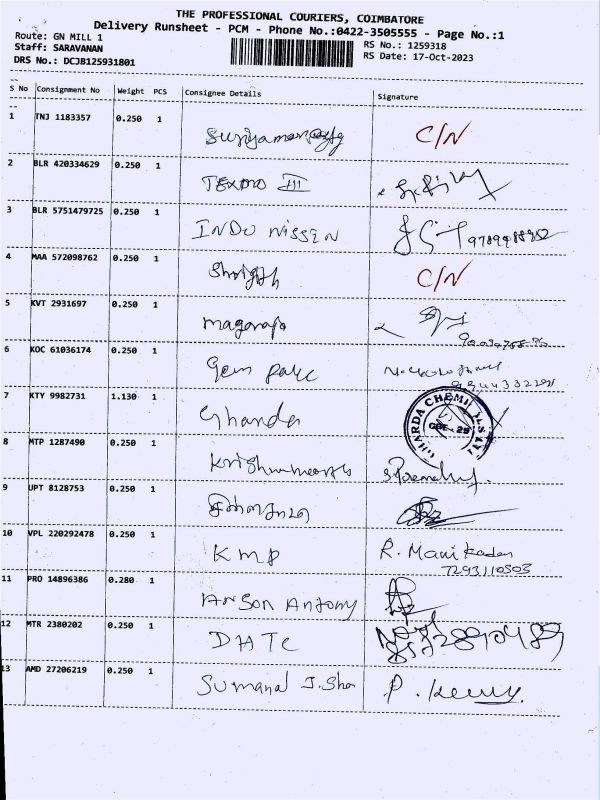 THE PROFESSIONAL COURIERS, COIMBATORE
Delivery Runsheet - PCM - Phone No.:0422-3505555 - Page No.:1
Route: GN MILL 1
Staff: SARAVANAN
DRS No.: DCJB125931801
RS No.: 1259318
RS Date: 17-Oct-2023
S No Consignment No Weight PCS Consignee Details Signature
1 TNJ 1183357 0.250 1 C/N
2 BLR 420334629 0.250 1 TEXMO III
3 BLR 5751479725 0.250 1 INDO NISSEN
4 MAA 572098762 0.250 1 C/N
5 KVT 2931697 0.250 1
6 KOC 61036174 0.250 1 Gem
7 KTY 9982731 1.130 1 Gharda GHARDA CHEMI
8 MTP 1287490 0.250 1
9 UPT 8128753 0.250 1
10 VPL 220292478 0.250 1 KMP R. Manikadan
7293110503
11 PRO 14896386 0.280 1 Anson Antony
12 MTR 2380202 0.250 1 DHTC
13 AMD 27206219 0.250 1 Sumanal J. Sha P.